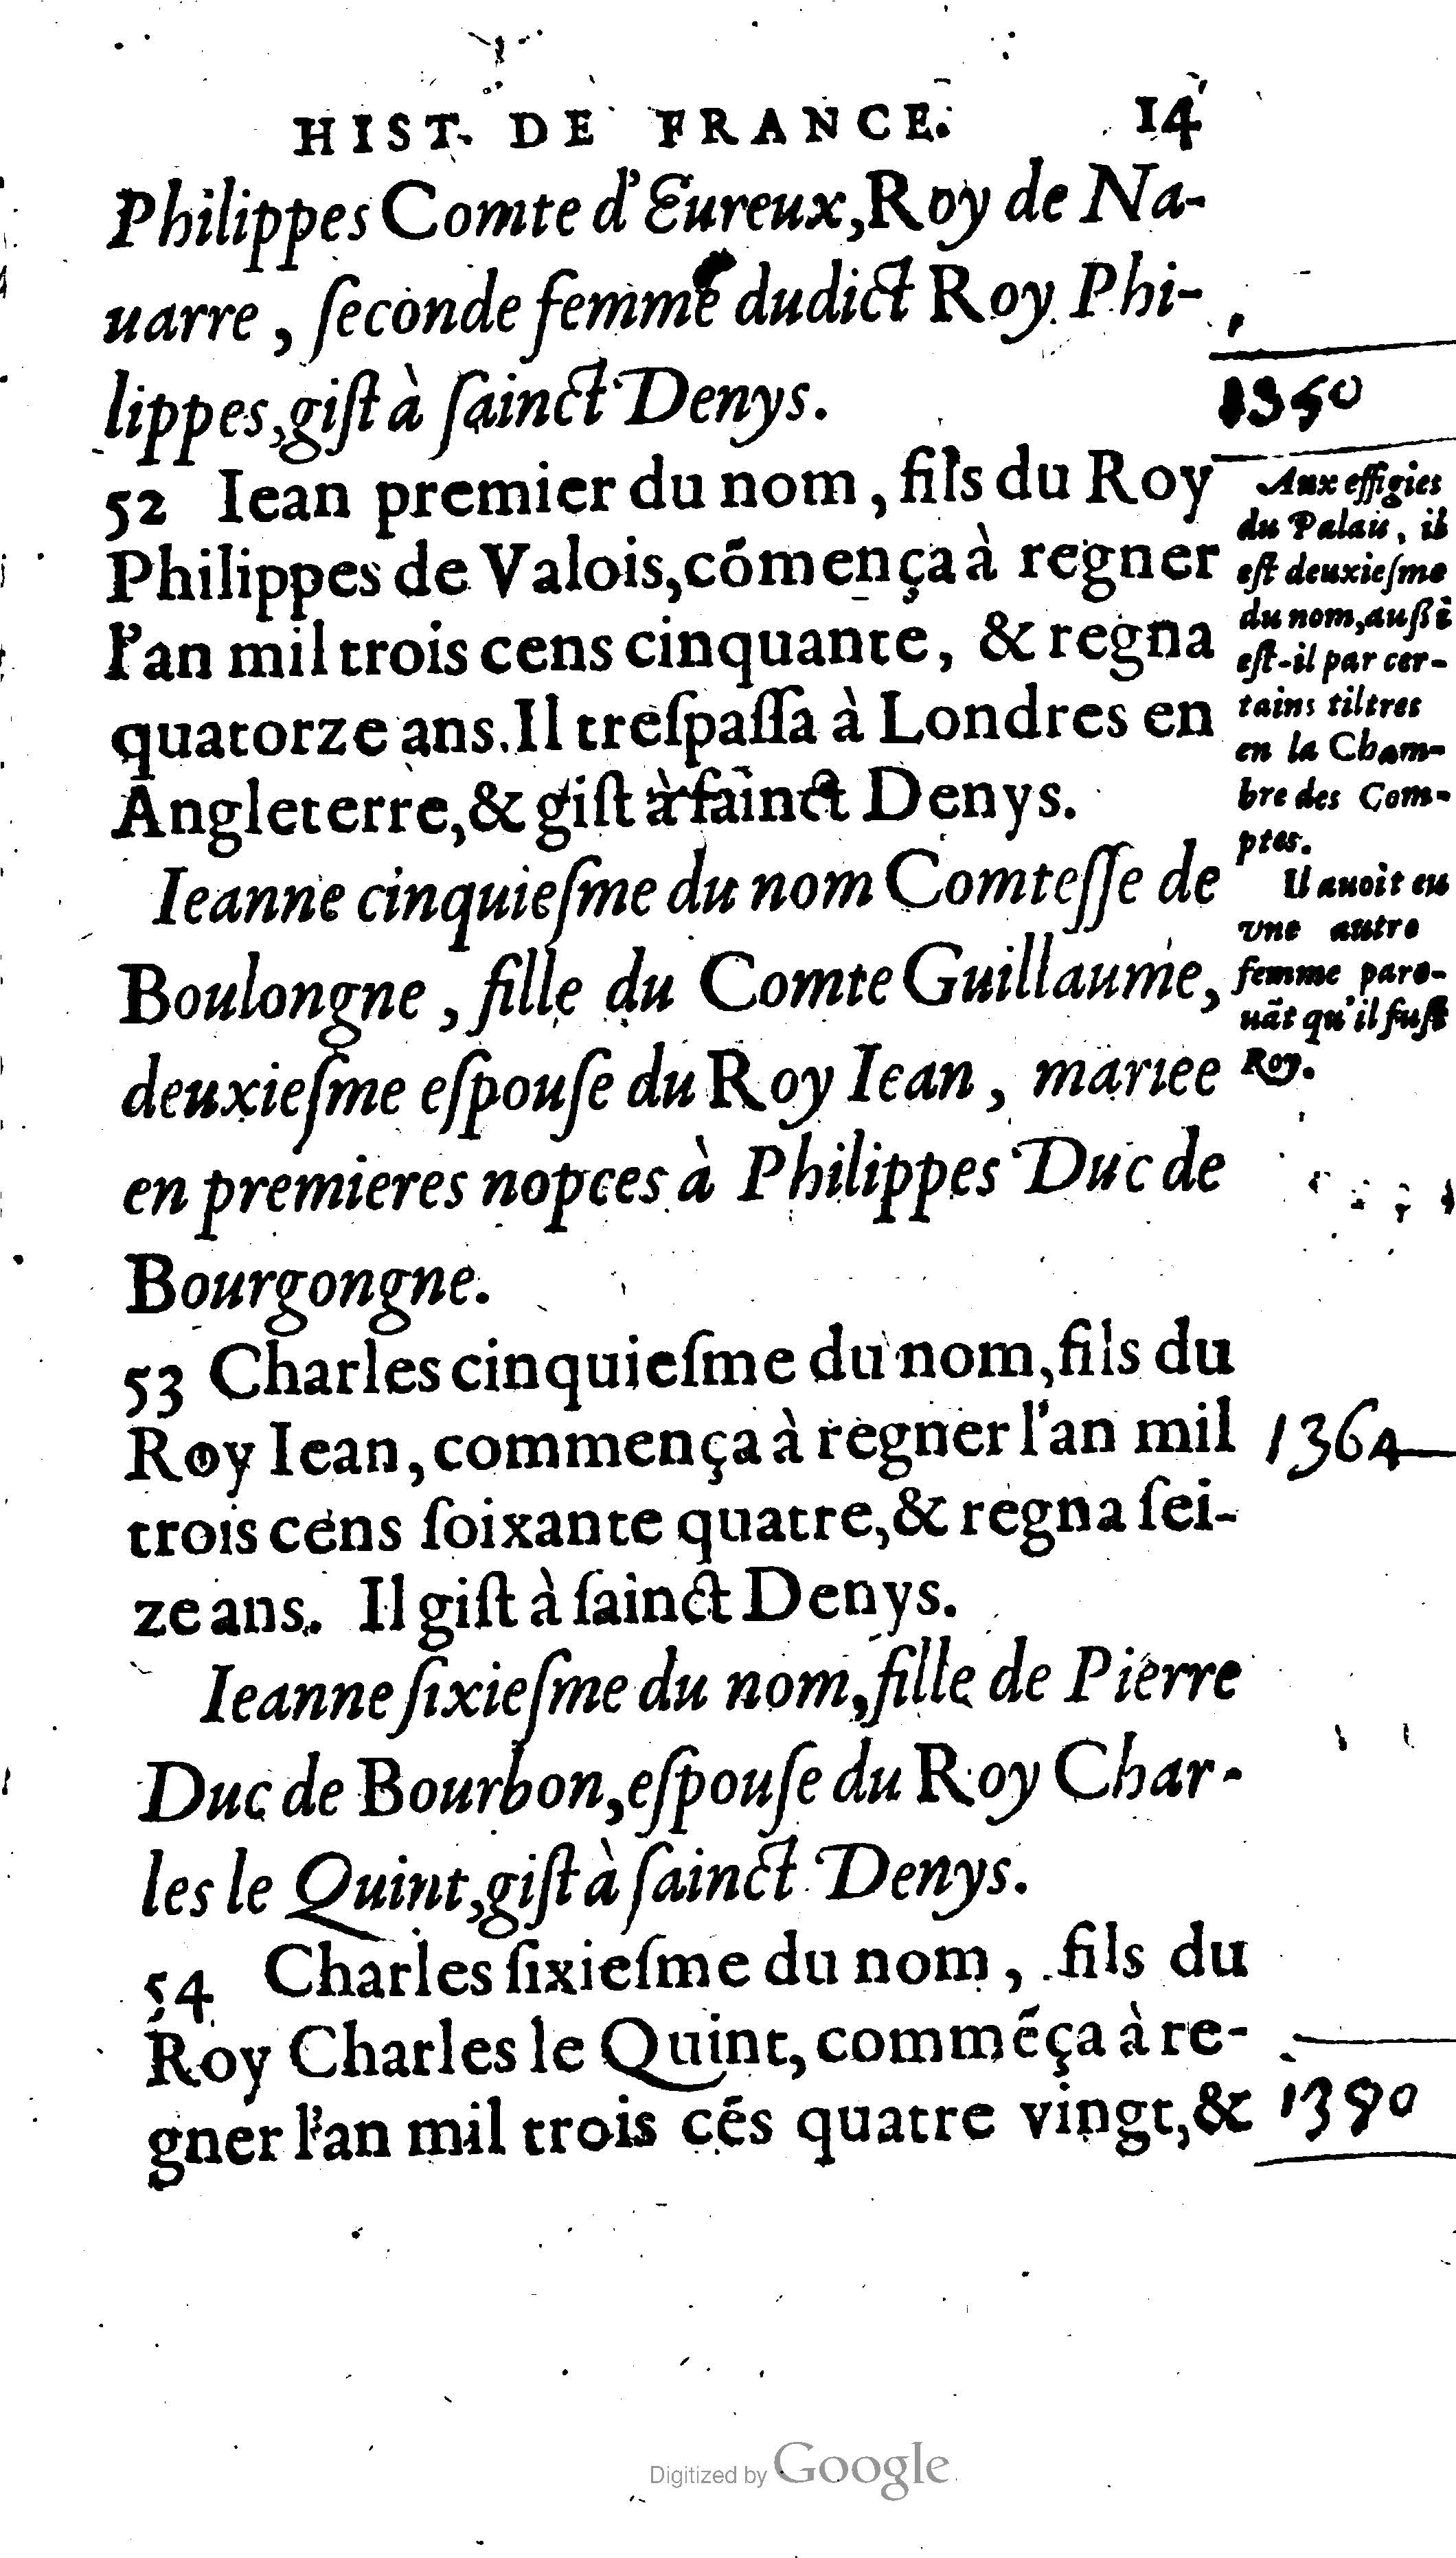 HIST. DE FRANCE. 14
Philippes Comte d'Eureux, Roy de Na-
uarre, ſeconde femme dudict Roy Phi-
lippes, giſt à ſainct Denys.
1350
52 Iean premier du nom, fils du Roy
Philippes de Valois, cõmença à regner
l'an mil trois cens cinquante, & regna
quatorze ans. Il treſpaſſa à Londres en
Angleterre, & giſt à ſainct Denys.
Aux effigies
du Palais, il
eſt deuxieſme
du nom, auſſi
eſt-il par cer-
tains tiltres
en la Cham-
bre des Com-
ptes.
Ieanne cinquieſme du nom Comteſſe de
Boulongne, fille du Comte Guillaume,
deuxieſme eſpouſe du Roy Iean, mariee
en premieres nopces à Philippes Duc de
Bourgongne.
Il auoit eu
vne autre
femme parа-
uãt qu'il fuſt
Roy.
53 Charles cinquieſme du nom, fils du
Roy Iean, commença à regner l'an mil
1364
trois cens ſoixante quatre, & regna ſei-
ze ans. Il giſt à ſainct Denys.
Ieanne ſixieſme du nom, fille de Pierre
Duc de Bourbon, eſpouſe du Roy Char-
les le Quint, giſt à ſainct Denys.
54 Charles ſixieſme du nom, fils du
Roy Charles le Quint, commẽça à re-
gner l'an mil trois cẽs quatre vingt, &
1390
Digitized by Google